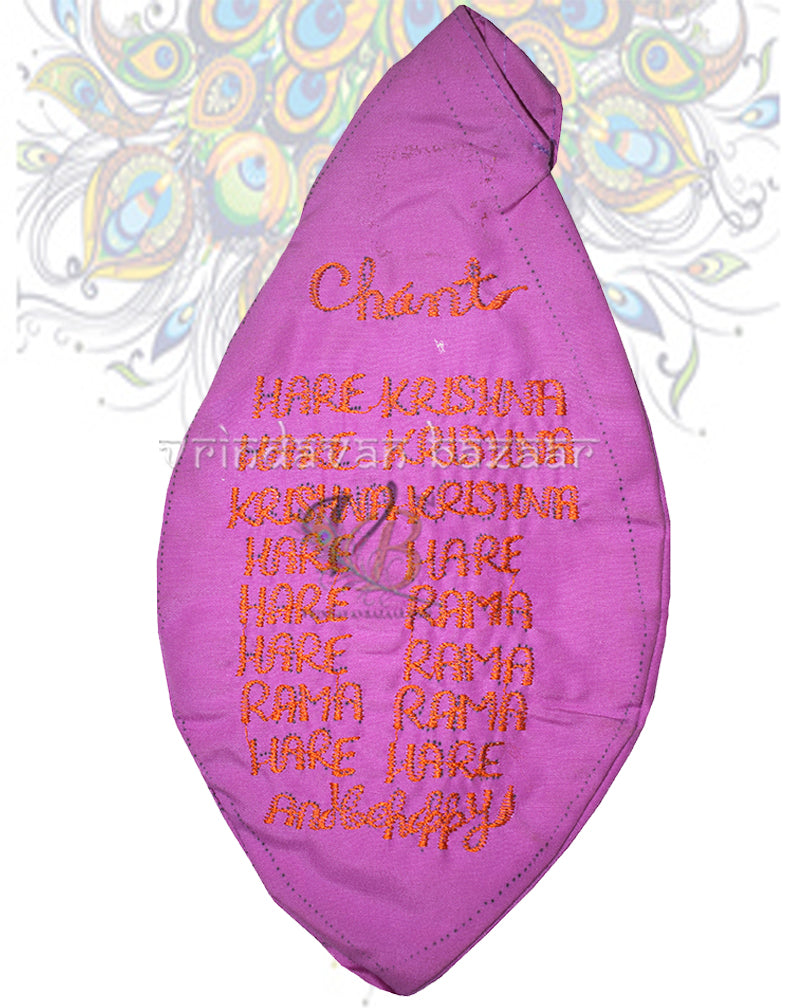 Chant
HARE KRISHNA
HARE KRISHNA
vrindavan bazaar
KRISHNA KRISHNA
HARE HARE
VB
HARE RAMA
HARE RAMA
RAMA RAMA
HARE HARE
And be happy